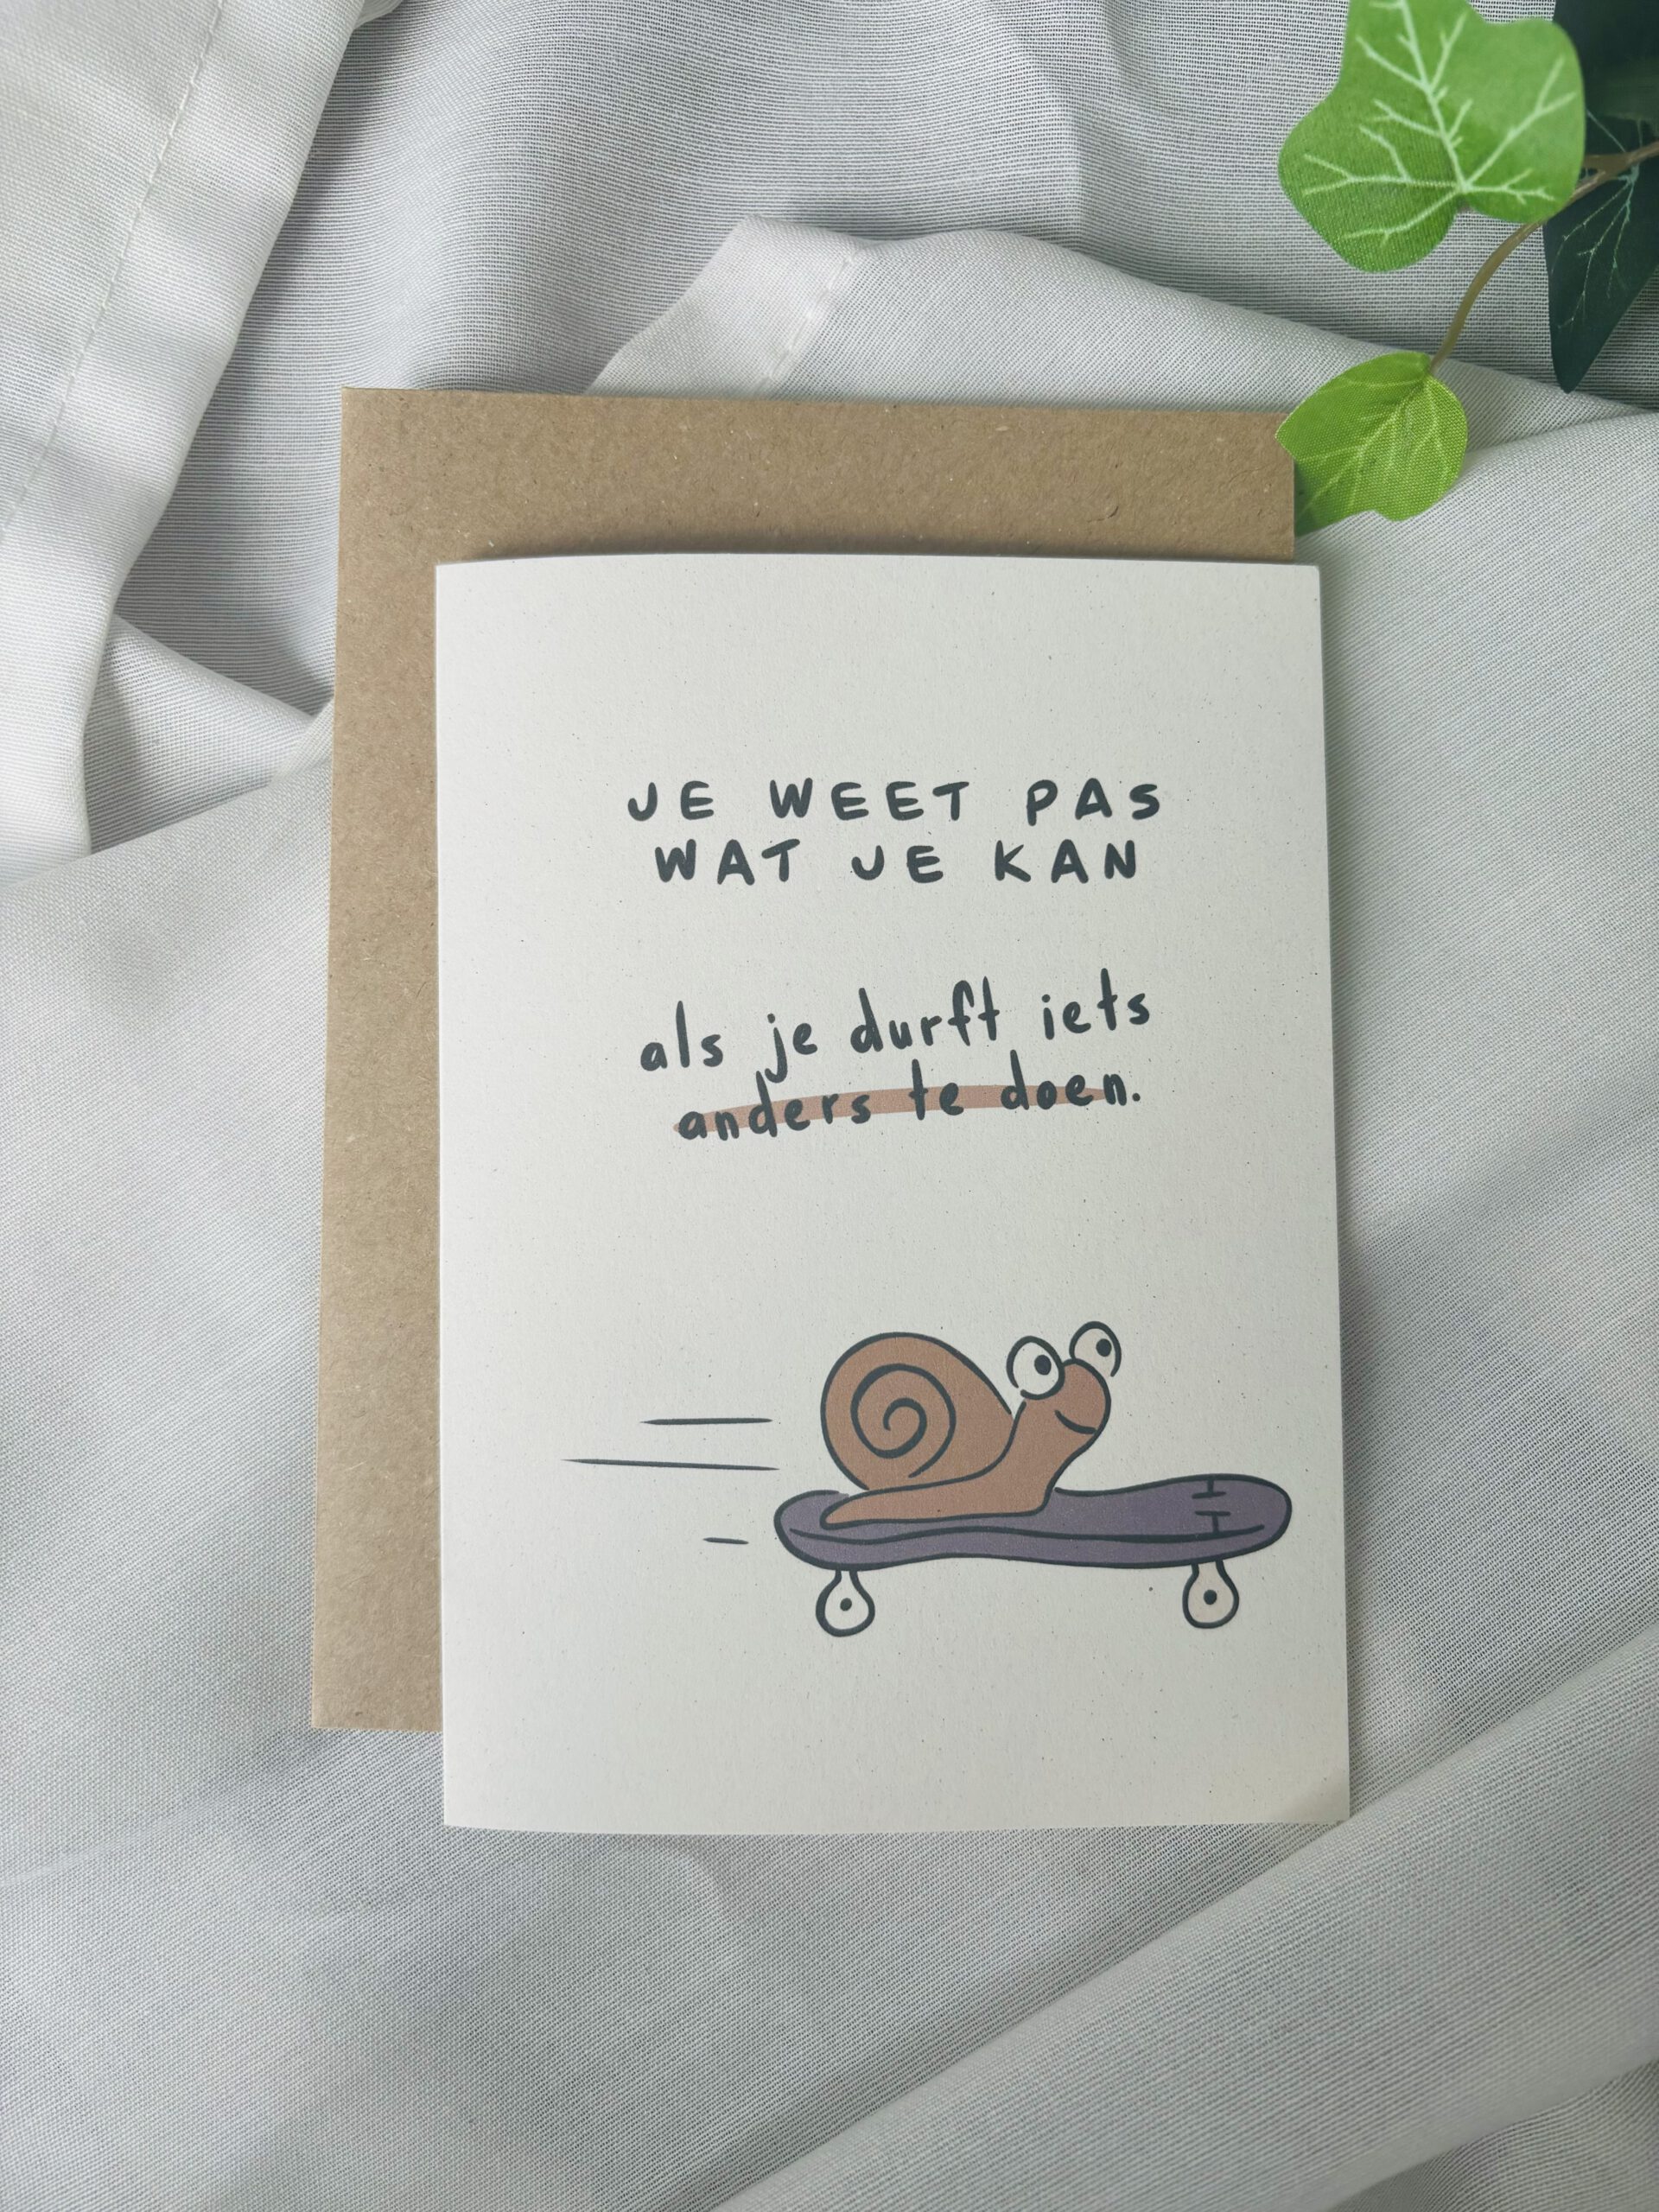 JE WEET PAS
WAT JE KAN
als je durft iets
anders te doen.